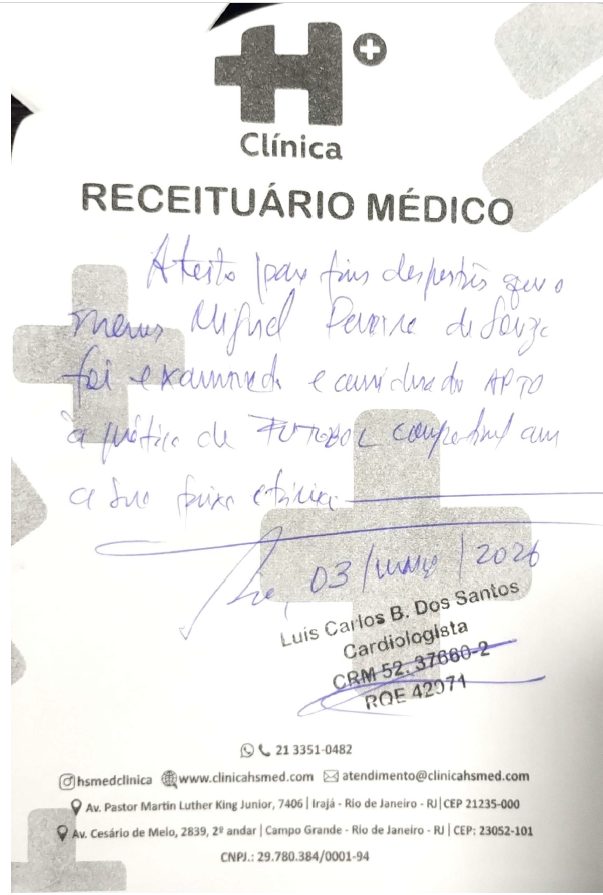 H+
Clínica
RECEITUÁRIO MÉDICO
Atesto para fins desportivos que o
menor Miguel Pereira de Souza
foi examinado e considerado APTO
à prática de FUTEBOL competitivo em
a sua faixa etária
03/março/2026
Luis Carlos B. Dos Santos
Cardiologista
CRM 52. 37660-2
RQE 42971
21 3351-0482
hsmedclinica www.clinicahsmed.com atendimento@clinicahsmed.com
Av. Pastor Martin Luther King Junior, 7406 | Irajá - Rio de Janeiro - RJ | CEP 21235-000
Av. Cesário de Melo, 2839, 2º andar | Campo Grande - Rio de Janeiro - RJ | CEP: 23052-101
CNPJ.: 29.780.384/0001-94